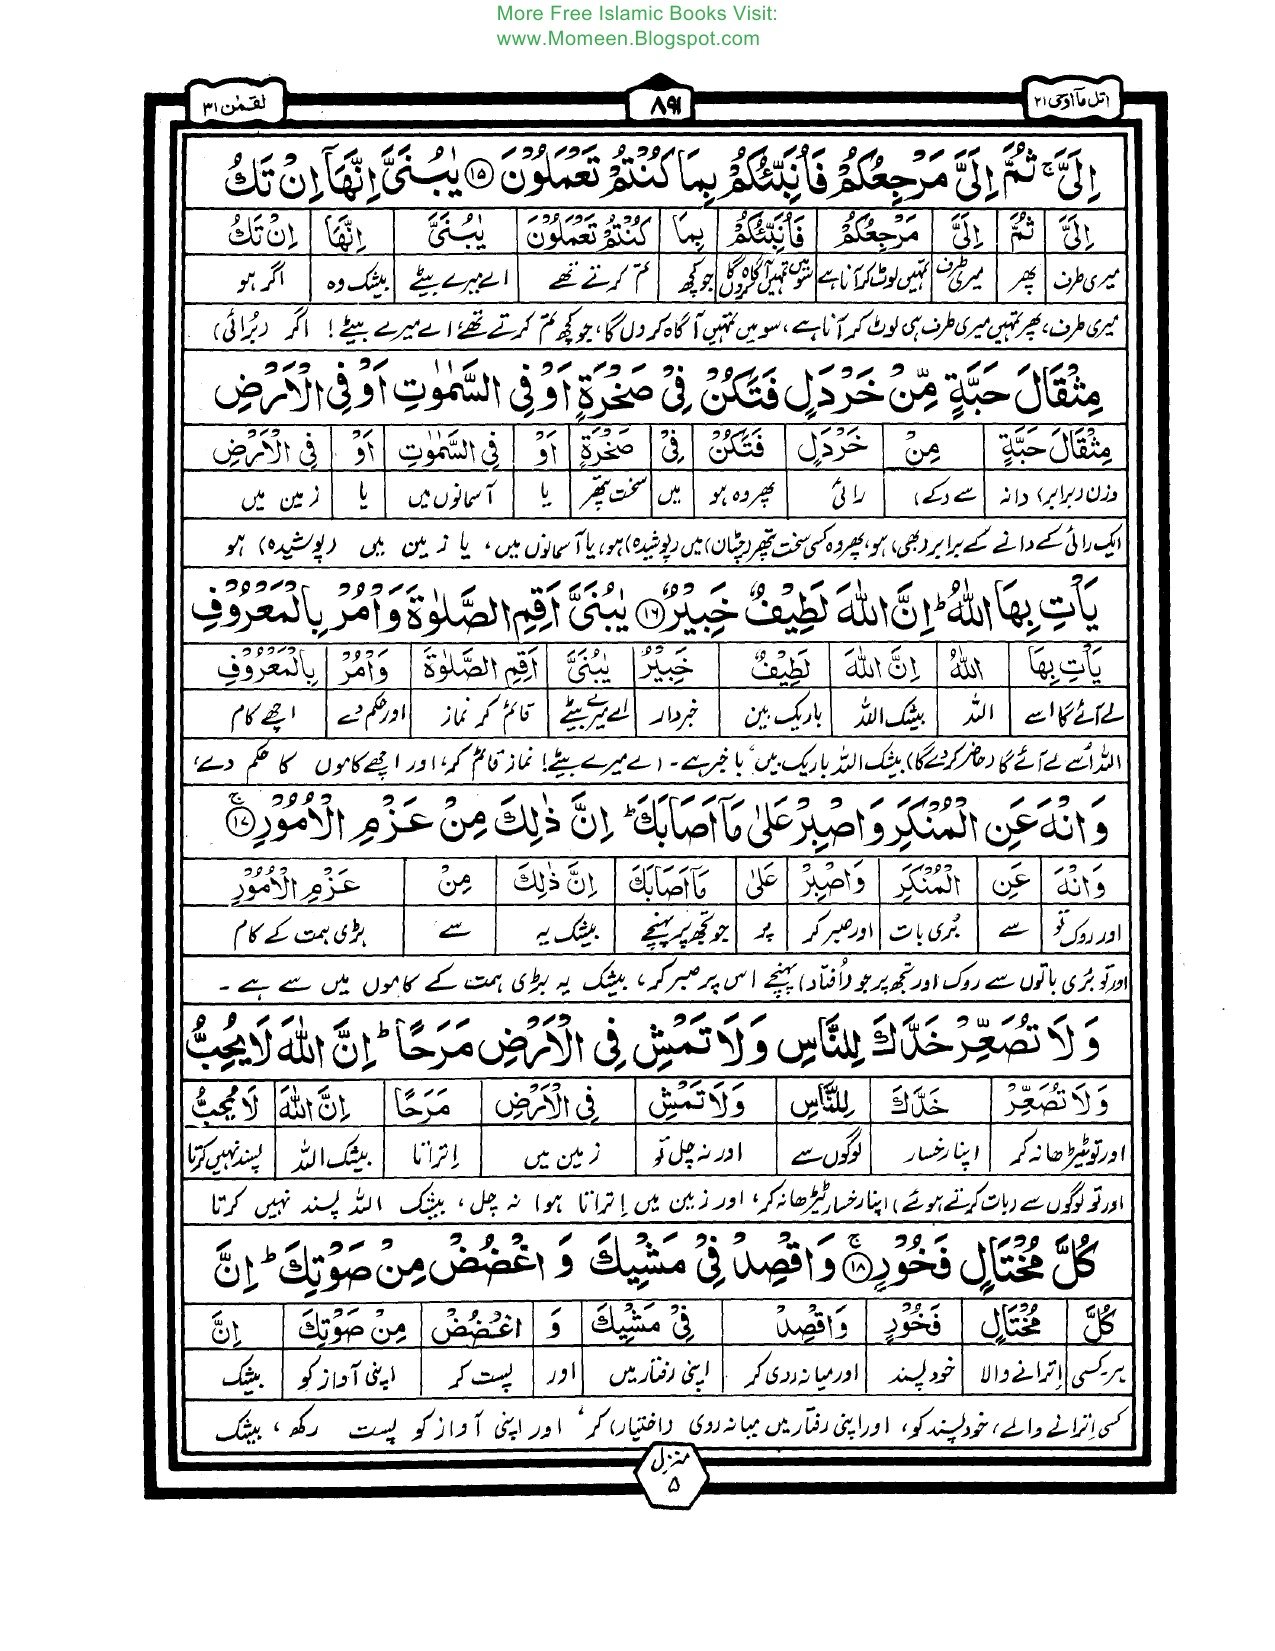 More Free Islamic Books Visit:
www.Momeen.Blogspot.com
اتل ما اوحی ۲۱
۸۹۱
لقمٰن ۳۱
اِلَیَّ ۚ ثُمَّ اِلَیَّ مَرْجِعُكُمْ فَاُنَبِّئُكُمْ بِمَا كُنْتُمْ تَعْمَلُوْنَ ۱۵ یٰبُنَیَّ اِنَّهَاۤ اِنْ تَكُ
اِلَیَّ ثُمَّ اِلَیَّ مَرْجِعُكُمْ فَاُنَبِّئُكُمْ بِمَا كُنْتُمْ تَعْمَلُوْنَ یٰبُنَیَّ اِنَّهَاۤ اِنْ تَكُ
میری طرف پھر میری طرف تمہیں لوٹ کر آنا ہے سو میں تمہیں آگاہ کردوں گا جو کچھ تم کرتے تھے اے میرے بیٹے بیشک وہ اگر ہو
میری طرف، پھر تمہیں میری طرف ہی لوٹ کر آنا ہے، سو میں تمہیں آگاہ کر دوں گا، جو کچھ تم کرتے تھے؛ اے میرے بیٹے! اگر (برُائی)
مِثْقَالَ حَبَّةٍ مِّنْ خَرْدَلٍ فَتَكُنْ فِیْ صَخْرَةٍ اَوْ فِی السَّمٰوٰتِ اَوْ فِی الْاَرْضِ
مِثْقَالَ حَبَّةٍ مِنْ خَرْدَلٍ فَتَكُنْ فِیْ صَخْرَةٍ اَوْ فِی السَّمٰوٰتِ اَوْ فِی الْاَرْضِ
وزن (برابر) دانہ سے (کے) رائی پھر وہ ہو میں سخت پتھر یا آسمانوں میں یا زمین میں
ایک رائی کے دانے کے برابر (بھی) ہو، پھر وہ کسی سخت پتھر (چٹان) میں (پوشیدہ) ہو، یا آسمانوں میں، یا زمین میں (پوشیدہ) ہو
یَاْتِ بِهَا اللّٰهُ ؕ اِنَّ اللّٰهَ لَطِیْفٌ خَبِیْرٌ ۱۶ یٰبُنَیَّ اَقِمِ الصَّلٰوةَ وَاْمُرْ بِالْمَعْرُوْفِ
یَاْتِ بِهَا اللّٰهُ اِنَّ اللّٰهَ لَطِیْفٌ خَبِیْرٌ یٰبُنَیَّ اَقِمِ الصَّلٰوةَ وَاْمُرْ بِالْمَعْرُوْفِ
لے آئے گا اسے اللہ بیشک اللہ باریک بین خبردار اے میرے بیٹے قائم کر نماز اور حکم دے اچھے کام
اللہ اُسے لے آئے گا (حاضر کردے گا) بیشک اللہ باریک بیں، باخبر ہے۔ اے میرے بیٹے! نماز قائم کر، اور اچھے کاموں کا حکم دے،
وَانْهَ عَنِ الْمُنْكَرِ وَاصْبِرْ عَلٰی مَاۤ اَصَابَكَ ؕ اِنَّ ذٰلِكَ مِنْ عَزْمِ الْاُمُوْرِ ۚ ۱۷
وَانْهَ عَنِ الْمُنْكَرِ وَاصْبِرْ عَلٰی مَاۤ اَصَابَكَ اِنَّ ذٰلِكَ مِنْ عَزْمِ الْاُمُوْرِ
اور روک تو سے بُری بات اور صبر کر پر جو تجھ پر پہنچے بیشک یہ سے بڑی ہمت کے کام
اور تو بُری باتوں سے روک اور تجھ پر جو (اُفتاد) پہنچے اس پر صبر کر، بیشک یہ بڑی ہمت کے کاموں میں سے ہے۔
وَلَا تُصَعِّرْ خَدَّكَ لِلنَّاسِ وَلَا تَمْشِ فِی الْاَرْضِ مَرَحًا ؕ اِنَّ اللّٰهَ لَا یُحِبُّ
وَلَا تُصَعِّرْ خَدَّكَ لِلنَّاسِ وَلَا تَمْشِ فِی الْاَرْضِ مَرَحًا اِنَّ اللّٰهَ لَا یُحِبُّ
اور تو ٹیڑھا نہ کر اپنا رخسار لوگوں سے اور نہ چل تو زمین میں اِتراتا بیشک اللہ پسند نہیں کرتا
اور تو لوگوں سے (بات کرتے ہوئے) اپنا رخسار ٹیڑھا نہ کر، اور زمین میں اِتراتا ہوا نہ چل، بیشک اللہ پسند نہیں کرتا
كُلَّ مُخْتَالٍ فَخُوْرٍ ۚ ۱۸ وَاقْصِدْ فِیْ مَشْیِكَ وَ اغْضُضْ مِنْ صَوْتِكَ ؕ اِنَّ
كُلَّ مُخْتَالٍ فَخُوْرٍ وَاقْصِدْ فِیْ مَشْیِكَ وَ اغْضُضْ مِنْ صَوْتِكَ اِنَّ
ہر کسی اِترانے والا خود پسند اور میانہ روی کر اپنی رفتار میں اور پست کر اپنی آواز کو بیشک
کسی اِترانے والے، خود پسند کو، اور اپنی رفتار میں میانہ روی (اختیار) کر، اور اپنی آواز کو پست رکھ، بیشک
منزل
۵